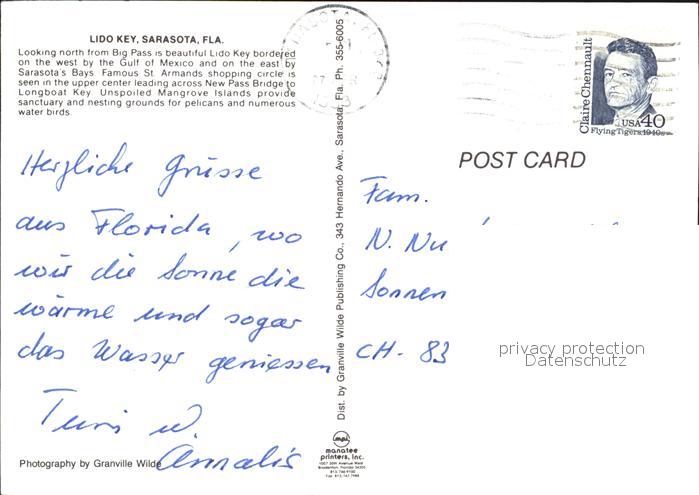 LIDO KEY, SARASOTA, FLA.
Looking north from Big Pass is beautiful Lido Key bordered
on the west by the Gulf of Mexico and on the east by
Sarasota's Bays. Famous St. Armands shopping circle is
seen in the upper center leading across New Pass Bridge to
Longboat Key. Unspoiled Mangrove Islands provide
sanctuary and nesting grounds for pelicans and numerous
water birds.
Herzliche Grüsse
aus Florida, wo
wir die Sonne die
wärme und sogar
das Wasser geniessen
Turi u.
Annalis
Photography by Granville Wilde
Dist. by Granville Wilde Publishing Co., 343 Hernando Ave., Sarasota, Fla. Ph. 355-6005
mpi
manatee
printers, inc.
Claire Chennault
USA 40
Flying Tigers, 1940s
POST CARD
Fam.
N. Nu
Sonnen
CH - 83
privacy protection
Datenschutz